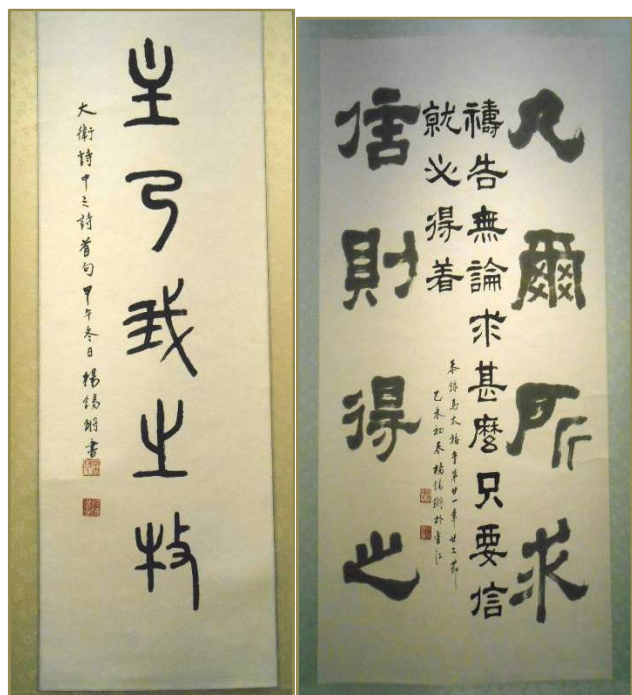 主乃我之牧
大衛詩中之詩首句甲午冬日楊錫鏘書
凡爾所求
信則得之
禱告無論求甚麼只要信
就必得着
恭錄馬太福音第廿一章廿二節
乙未初春楊錫鏘於香江